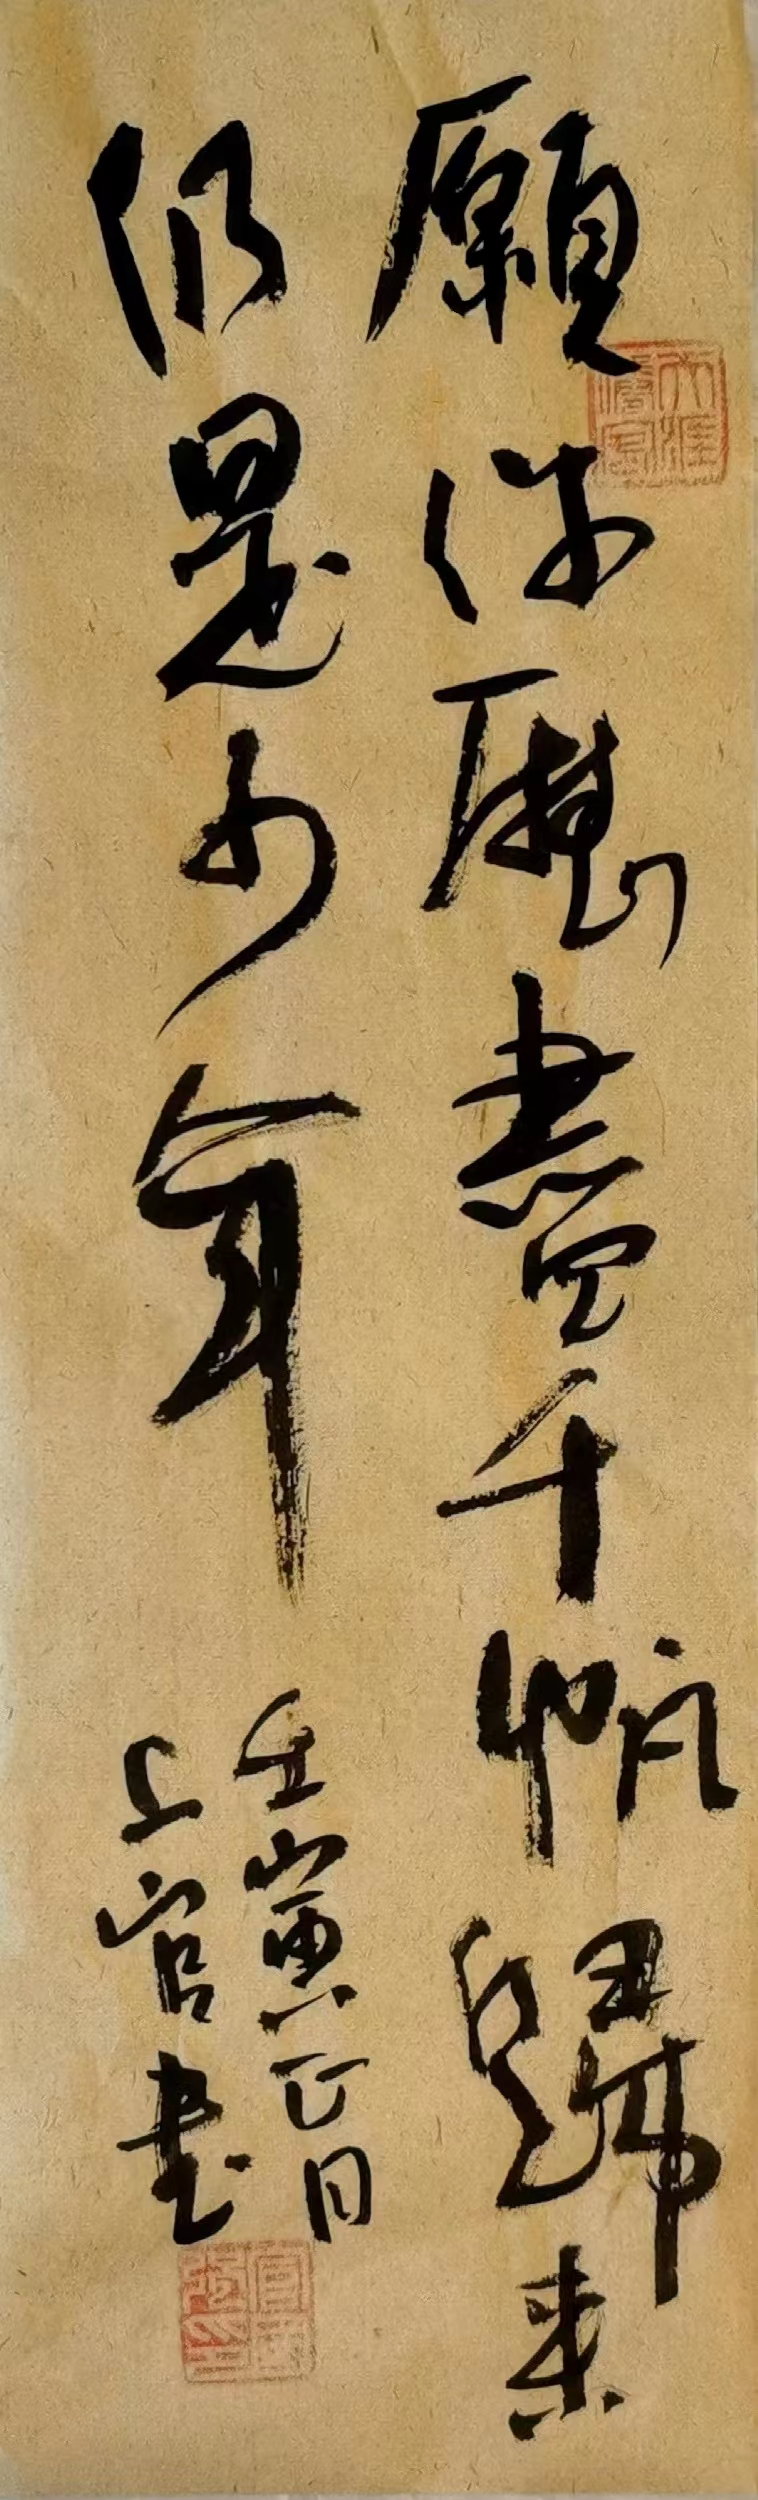 願你歷盡千帆歸来
仍是少年
壬寅正月
上官書